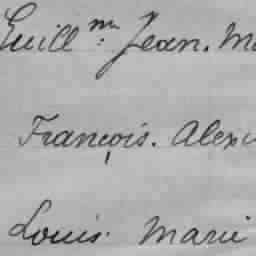 Guill.m Jean. Ma
François. Alex
Louis. Marie